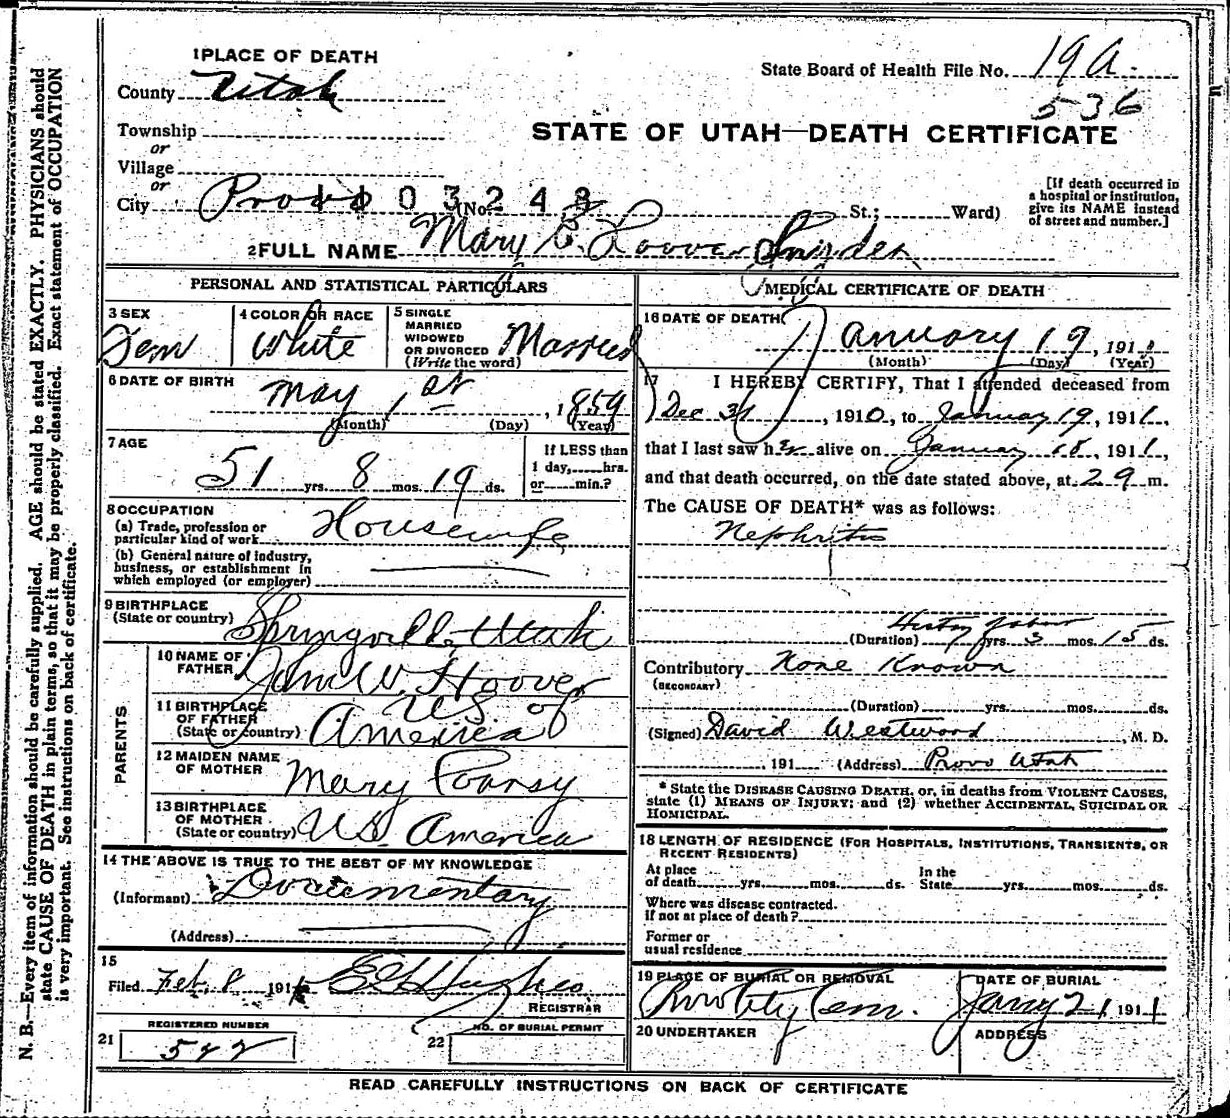 1 PLACE OF DEATH
County Utah
Township
or
Village
or
City Provo 1103243 (No. St.; Ward)
State Board of Health File No. 19A.
536
STATE OF UTAH—DEATH CERTIFICATE
[If death occurred in
a hospital or institution,
give its NAME instead
of street and number.]
2 FULL NAME Mary E. Hoover Snyder
PERSONAL AND STATISTICAL PARTICULARS
3 SEX
Fem
4 COLOR OR RACE
White
5 SINGLE
MARRIED
WIDOWED
OR DIVORCED
(Write the word)
Married
6 DATE OF BIRTH
May 1st, 1859
(Month) (Day) (Year)
7 AGE
51 yrs. 8 mos. 19 ds.
If LESS than
1 day, hrs.
or min.?
8 OCCUPATION
(a) Trade, profession or
particular kind of work Housewife
(b) General nature of industry,
business, or establishment in
which employed (or employer)
9 BIRTHPLACE
(State or country) Springville, Utah
PARENTS
10 NAME OF
FATHER John W. Hoover
11 BIRTHPLACE
OF FATHER
(State or country) U S of
America
12 MAIDEN NAME
OF MOTHER Mary
13 BIRTHPLACE
OF MOTHER
(State or country) U S. America
14 THE ABOVE IS TRUE TO THE BEST OF MY KNOWLEDGE
(Informant) Documentary
(Address)
15
Filed Feb. 8 191 Hughes
REGISTRAR
21 REGISTERED NUMBER
522
22 NO. OF BURIAL PERMIT
MEDICAL CERTIFICATE OF DEATH
16 DATE OF DEATH
January 19, 191
(Month) (Day) (Year)
17 I HEREBY CERTIFY, That I attended deceased from
Dec 31, 1910, to January 19, 1911,
that I last saw her alive on January 18, 1911,
and that death occurred, on the date stated above, at 2 9 m.
The CAUSE OF DEATH* was as follows:
Nephritis
(Duration) yrs. 3 mos. 15 ds.
Contributory None Known
(SECONDARY)
(Duration) yrs. mos. ds.
(Signed) David Westwood, M. D.
, 191 (Address) Provo Utah
* State the DISEASE CAUSING DEATH, or, in deaths from VIOLENT CAUSES,
state (1) MEANS OF INJURY; and (2) whether ACCIDENTAL, SUICIDAL OR
HOMICIDAL.
18 LENGTH OF RESIDENCE (FOR HOSPITALS, INSTITUTIONS, TRANSIENTS, OR
RECENT RESIDENTS)
At place
of death yrs. mos. ds.
In the
State yrs. mos. ds.
Where was disease contracted.
If not at place of death?
Former or
usual residence
19 PLACE OF BURIAL OR REMOVAL
Provo City Cem.
DATE OF BURIAL
Jany 21, 1911
20 UNDERTAKER
ADDRESS
READ CAREFULLY INSTRUCTIONS ON BACK OF CERTIFICATE
N. B.—Every item of information should be carefully supplied. AGE should be stated EXACTLY. PHYSICIANS should
state CAUSE OF DEATH in plain terms, so that it may be properly classified. Exact statement of OCCUPATION
is very important. See instructions on back of certificate.